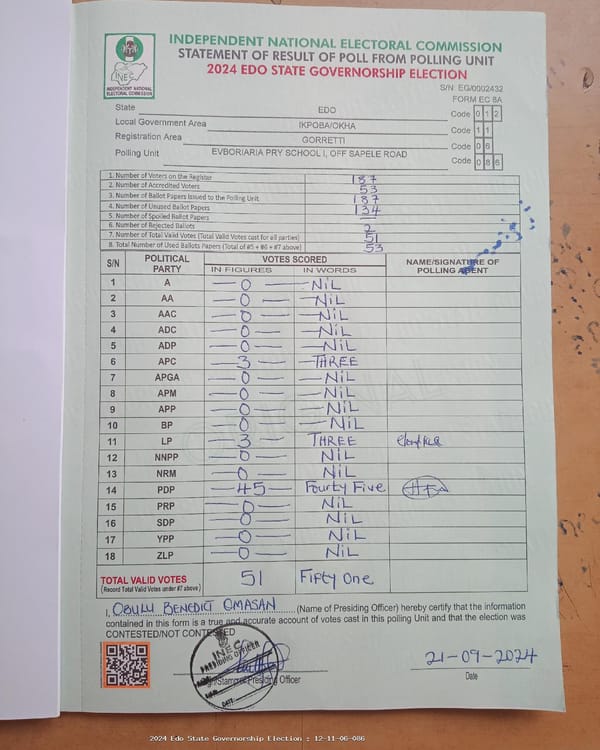 INDEPENDENT NATIONAL ELECTORAL COMMISSION
STATEMENT OF RESULT OF POLL FROM POLLING UNIT
2024 EDO STATE GOVERNORSHIP ELECTION
INEC
INDEPENDENT NATIONAL
ELECTORAL COMMISSION
S/N EG/0002432
FORM EC 8A
State EDO Code 0 1 2
Local Government Area IKPOBA/OKHA Code 1 1
Registration Area GORRETTI Code 0 6
Polling Unit EVBORIARIA PRY SCHOOL I, OFF SAPELE ROAD Code 0 8 6
1. Number of Voters on the Register 187
2. Number of Accredited Voters 53
3. Number of Ballot Papers Issued to the Polling Unit 187
4. Number of Unused Ballot Papers 134
5. Number of Spoiled Ballot Papers —
6. Number of Rejected Ballots 2
7. Number of Total Valid Votes (Total Valid Votes cast for all parties) 51
8. Total Number of Used Ballots Papers (Total of #5 + #6 + #7 above) 53
S/N POLITICAL PARTY VOTES SCORED NAME/SIGNATURE OF POLLING AGENT
IN FIGURES IN WORDS
1 A —0— —NiL
2 AA —0— —NiL
3 AAC —0— —NiL
4 ADC —0— —NiL
5 ADP —0— —NiL
6 APC —3— —THREE
7 APGA —0— —NiL
8 APM —0— —NiL
9 APP —0— —NiL
10 BP —0— —NiL
11 LP —3— THREE
12 NNPP —0— NIL
13 NRM —0— NiL
14 PDP —45— Fourty Five
15 PRP —0— NiL
16 SDP —0— NiL
17 YPP —0— NiL
18 ZLP —0— NiL
TOTAL VALID VOTES 51 Fifty One
(Record Total Valid Votes under #7 above)
I, OBULU BENEDICT OMASAN (Name of Presiding Officer) hereby certify that the information
contained in this form is a true and accurate account of votes cast in this polling Unit and that the election was
CONTESTED/NOT CONTESTED
INEC
PRESIDING OFFICER
DATE
Presiding Officer
21-09-2024
Date
2024 Edo State Governorship Election : 12-11-06-086